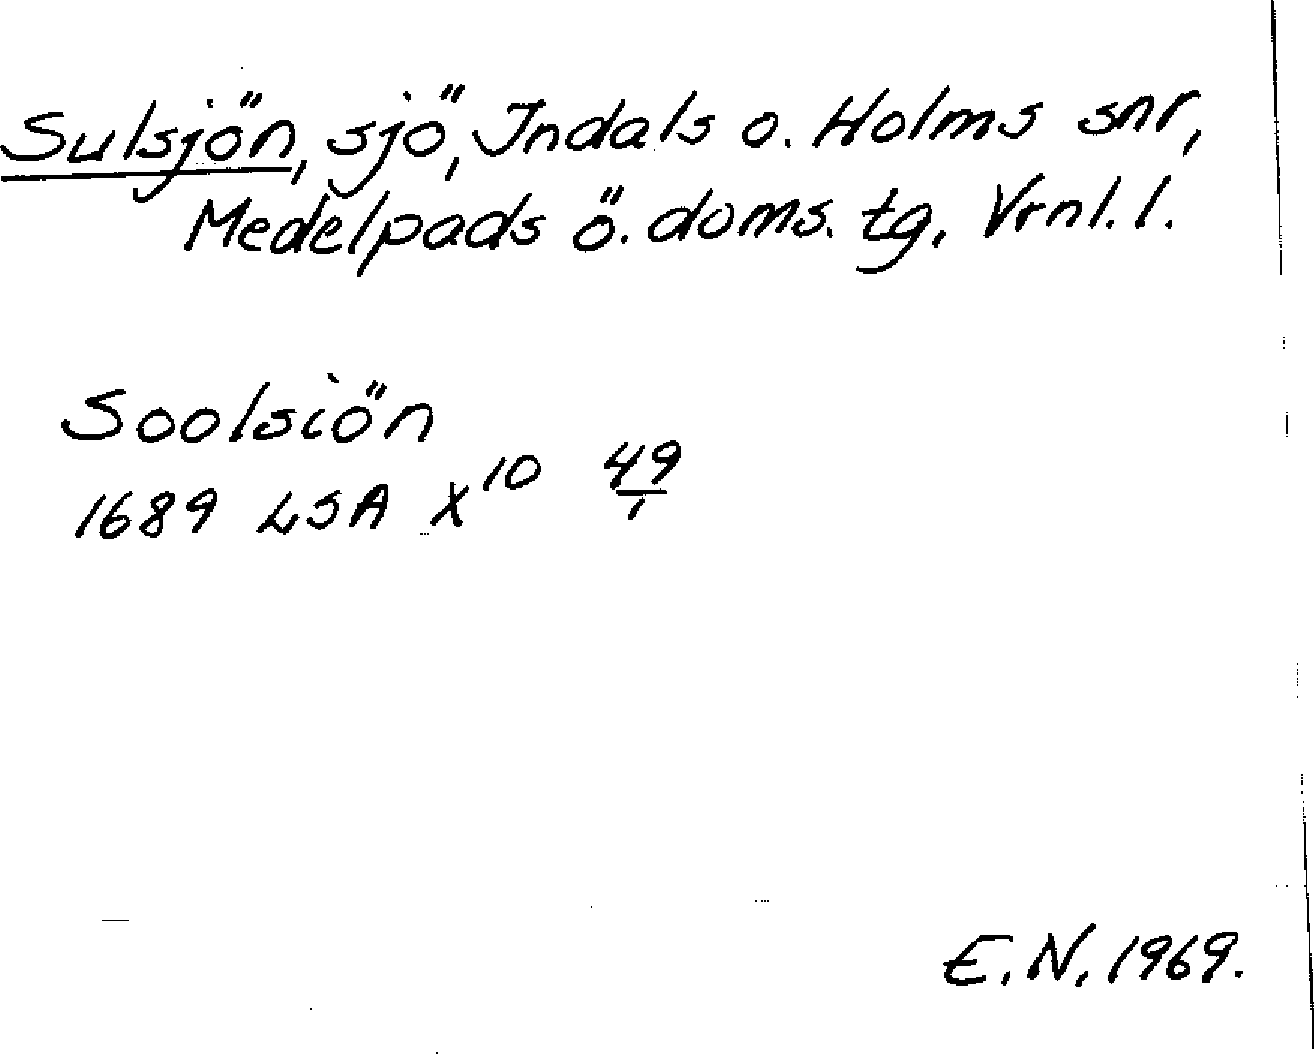 Sulsjön, sjö, Indals o. Holms snr,
Medelpads ö. doms. tg, Vrnl. l.
Soolsiön
1689 LSA X¹⁰ 49/1
E. N. 1969.